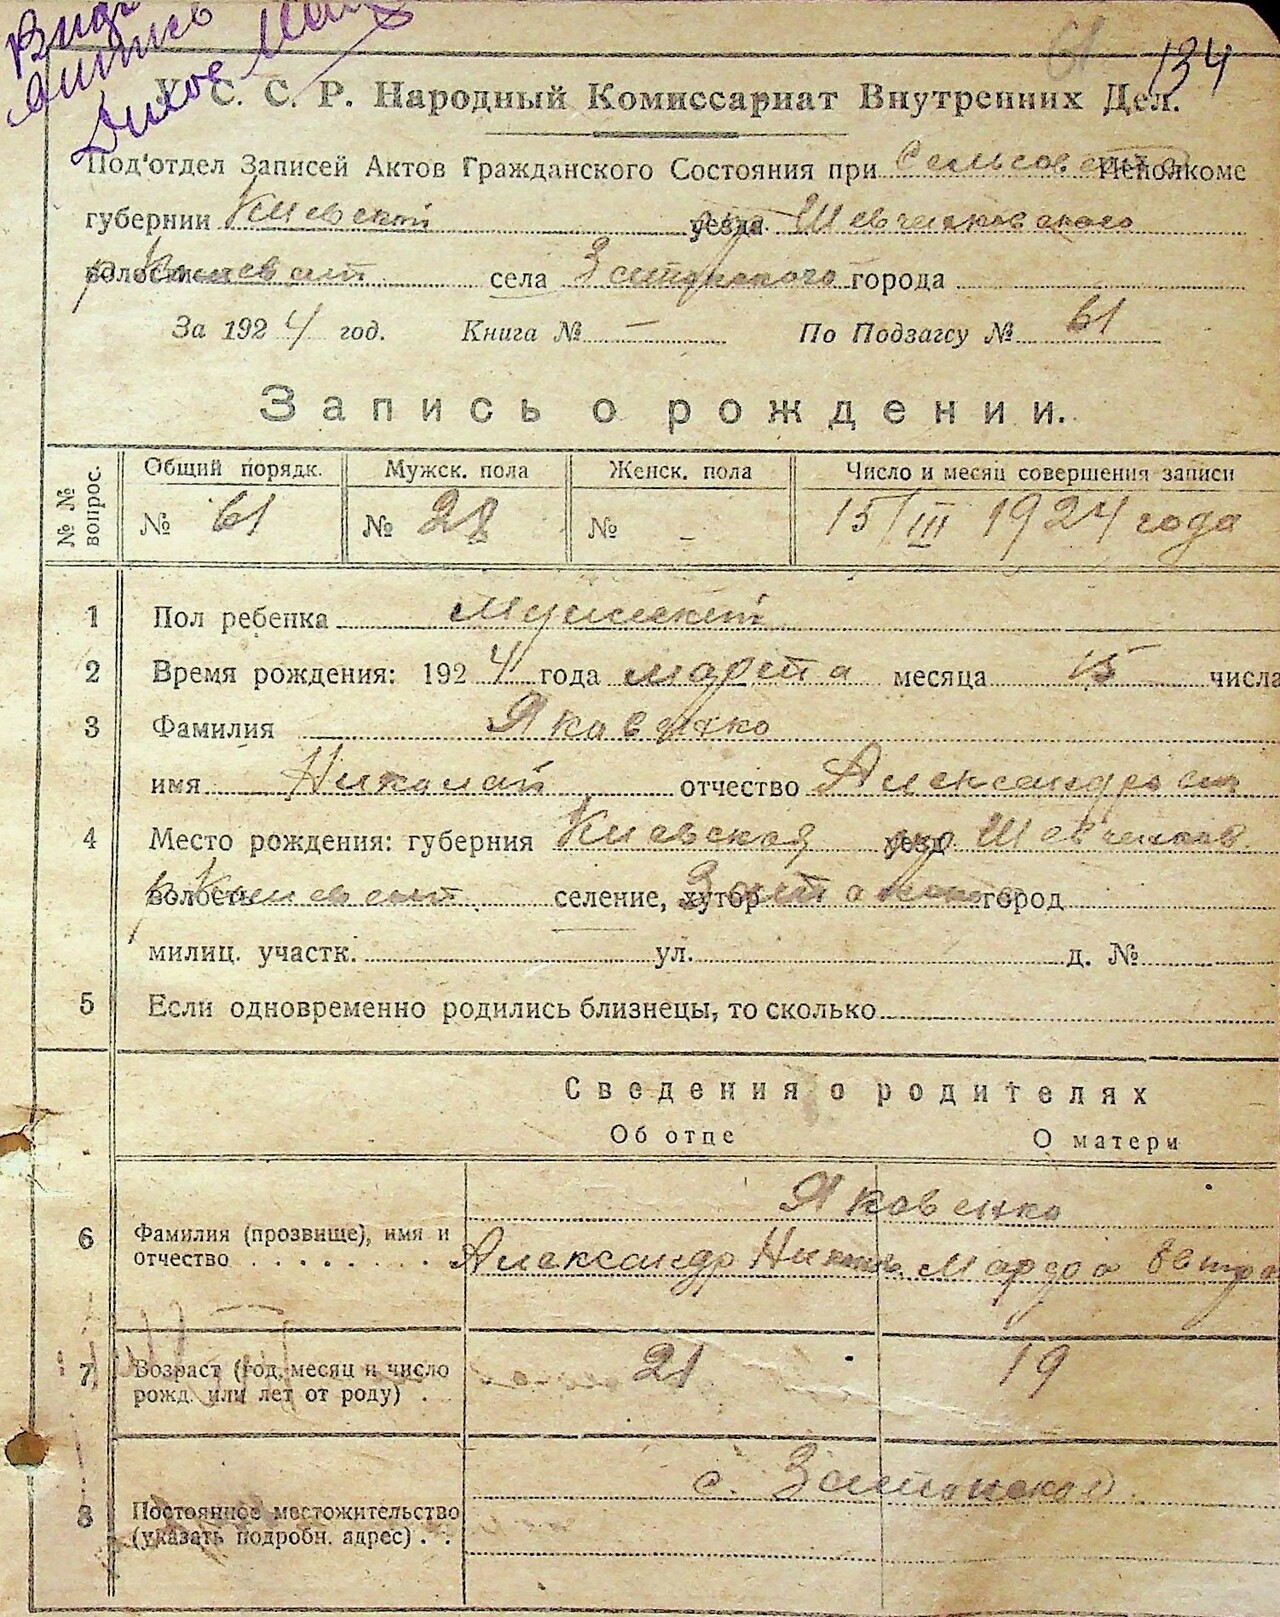 134
61
У. С. С. Р. Народный Комиссариат Внутренних Дел.
Под'отдел Записей Актов Гражданского Состояния при Сельсовете Исполкоме
губернии Киевской уезда окр. Шевченковского
волости села города
За 1924 год. Книга № — По Подзагсу № 61
Запись о рождении.
№ № вопрос.
Общий порядк. Мужск. пола Женск. пола Число и месяц совершения записи
№ 61 № 28 № - 15/III 1924 года
1 Пол ребенка Мужской
2 Время рождения: 1924 года марта месяца 15 числа
3 Фамилия Яковенко
имя Николай отчество Александров
4 Место рождения: губерния Киевская уезд окр Шевченков.
волость селение, хутор город
милиц. участк. ул. д. №
5 Если одновременно родились близнецы, то сколько
Сведения о родителях
Об отце О матери
Яковенко
6 Фамилия (прозвище), имя и
отчество Александр Марфа
7 Возраст (год, месяц и число
рожд. или лет от роду) 21 19
с.
8 Постоянное местожительство
(указать подробн. адрес)